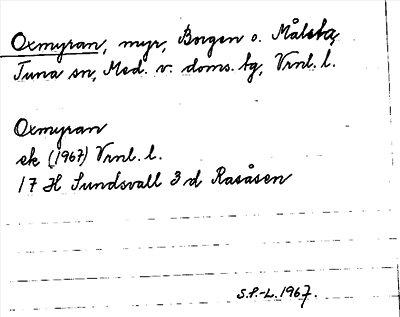 Oxmyran, myr, Borgen o. Målsta,
Tuna sn, Med. v. doms. tg, Vrnl. l.
Oxmyran
ek (1967) Vrnl. l.
17 H Sundsvall 3 d Rasåsen
S.P.-L. 1967.